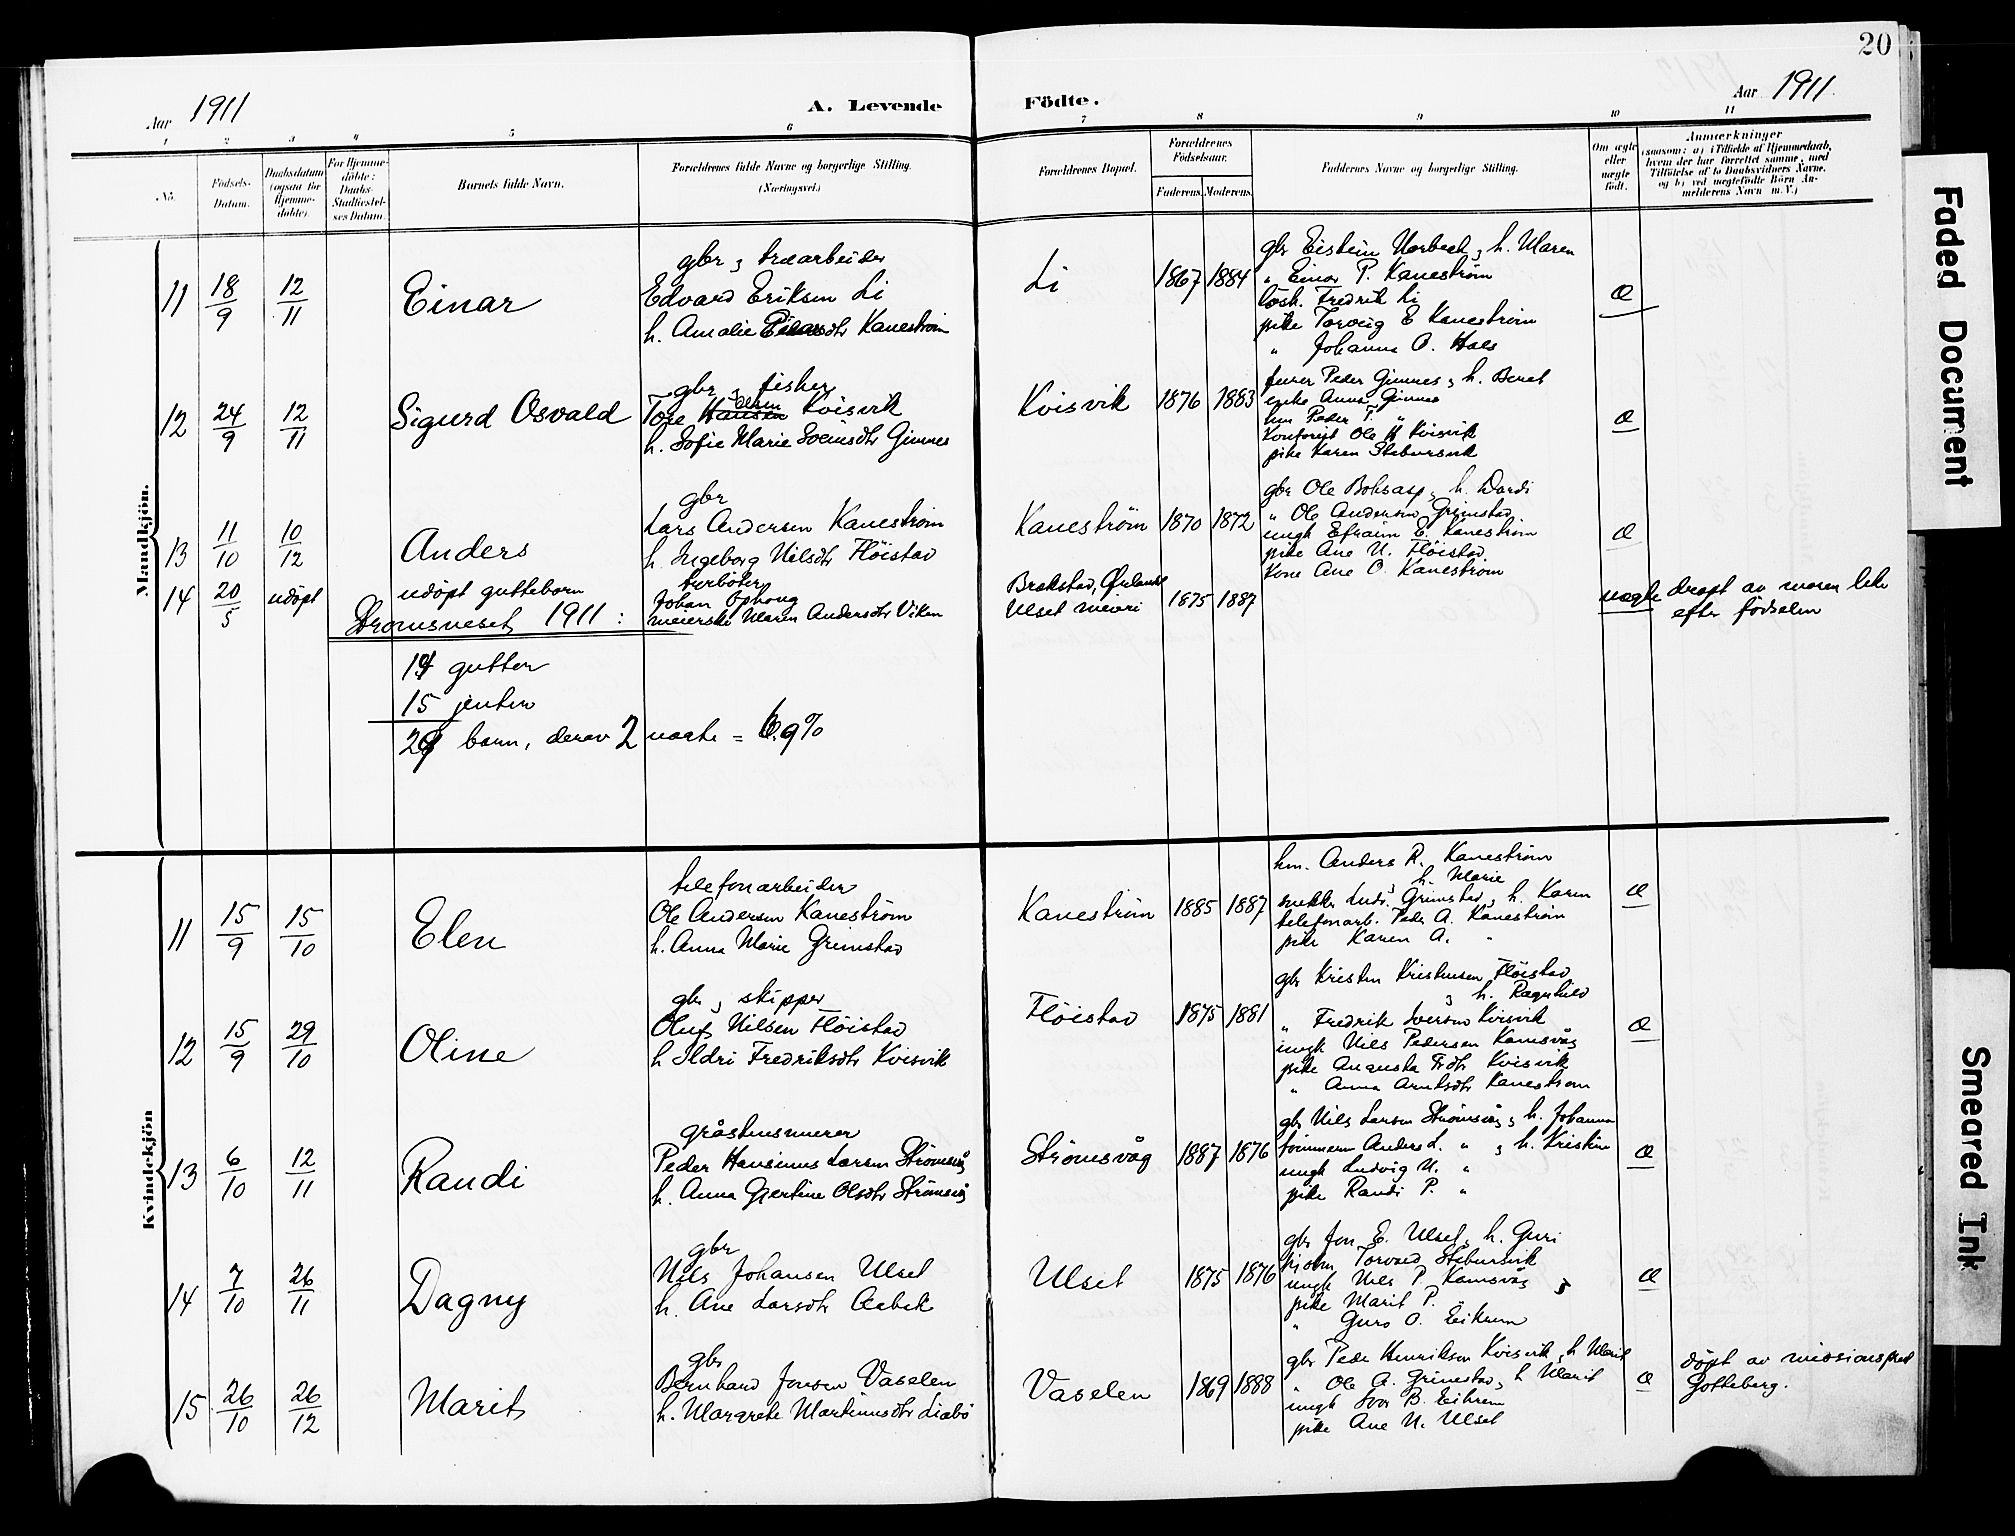 20
Aar 1911
A. Levende Födte.
Aar 1911.
1 2 3 4 5 6 7 8 9 10 11
No.
Födsels-
Datum.
Daabsdatum
(ogsaa for
Hjemme-
døbte).
For Hjemme-
döbte:
Daabs-
Stadfæstel-
ses Datum.
Barnets fulde Navn.
Forældrenes fulde Navne og borgerlige Stilling.
(Næringsvei.)
Forældrenes Bopæl.
Forældrenes
Födselsaar.
Faderens. Moderens.
Faddernes Navne og borgerlige Stilling.
Om ægte
eller
uægte
født.
Anmærkninger
(saasom: a) i Tilfælde af Hjemmedaab,
hvem der har forrettet samme, med
Tilföielse af to Daabsvidners Navne,
og b) ved uægtefödte Börn An-
melderens Navn m. V.)
Mandkjön.
11 18/9 12/11 Einar
gbr & træarbeider
Edvard Eriksen Li
h. Amalie Kaneström
Li 1867 1884
gbr Eistein Norbech, h. Maren
" Einar P. Kaneström
Fredrik Li
pike Torveig E Kaneström
" Johanna O. Hals
Æ
12 24/9 12/11 Sigurd Osvald
gbr & fisker
Tore Hansen Olsen Kvisvik
h. Sofie Marie Svensdtr Gimnes
Kvisvik 1876 1883
Peder Gimnes, h. Beret
enke Anna Gimnes
hm Peder T. "
Ole H Kvisvik
pike Karen Stebursvik
Æ
13 11/10 10/12 Anders
gbr
Lars Andersen Kaneström
h. Ingeborg Nilsdtr Flöistad
Kaneström 1870 1872
gbr Ole Bolsasp, h. Dordi
" Ole Andersen Grimstad
ungk Efraim E. Kaneström
pike Ane N. Flöistad
kone Ane O. Kaneström
Æ
14 20/5 udöpt udöpt guttebarn
Johan Ophaug
meierske Maren Andersdtr Viken
Brekstad, Ørlandet
Ulset meieri 1875 1887
uægte
dræpt av moren like
efter födselen
Strömsneset 1911:
14 gutter
15 jenter
29 barn, derav 2 uægte = 6.9%
Kvindekjön
11 15/9 15/10 Elen
telefonarbeider
Ole Andersen Kaneström
h. Anna Marie Grimstad
Kaneström 1885 1887
hm. Anders R. Kaneström
h. Marie
snekker Grimstad, h. Karen
telefonarb. Peder A. Kaneström
pike Karen A. "
Æ
12 15/9 29/10 Oline
gbr & skipper
Oluf Nilsen Flöistad
h Ildri Fredriksdtr Kvisvik
Flöistad 1875 1881
gbr Kristen Kristensen Flöistad
& h. Ragnhild
" Fredrik Iversen Kvisvik
ungk Nils Pedersen Kamsvåg
pike Augusta Frdtr Kvisvik
" Anna Arntsdtr Kaneström
Æ
13 6/10 12/11 Randi
gråstensmurer
Peder Hansinus Larsen Strömsvåg
h. Anna Gjertine Olsdtr Strömsvåg
Strömsvåg 1887 1876
gbr Nils Larsen Strömsvåg, h. Johanna
tömmerm Anders L. " & h. Kristine
ungk Ludvig N. "
pike Randi P. "
Æ
14 7/10 26/11 Dagny
gbr
Nils Johansen Ulset
h. Ane Larsdtr Aebek
Ulset 1875 1876
gbr Jon E. Ulset, h. Guri
Torvald Stebursvik
ungk Nils P Kamsvåg
pike Marit P. "
" Guro O. Eikrem
Æ
15 26/10 26/12 Marit
gbr
Bernhard Jonsen Vaselen
h. Margrete Martinusdtr Liabö
Vaselen 1869 1888
gbr Peder Henriksen Kvisvik, h Marit
" Ole A. Grimstad, h Marit
ungk Ivar B. Eikrem
pike Ane N. Ulset
Æ
döpt av missionsprest
Gotteberg.
Faded Document
Smeared Ink